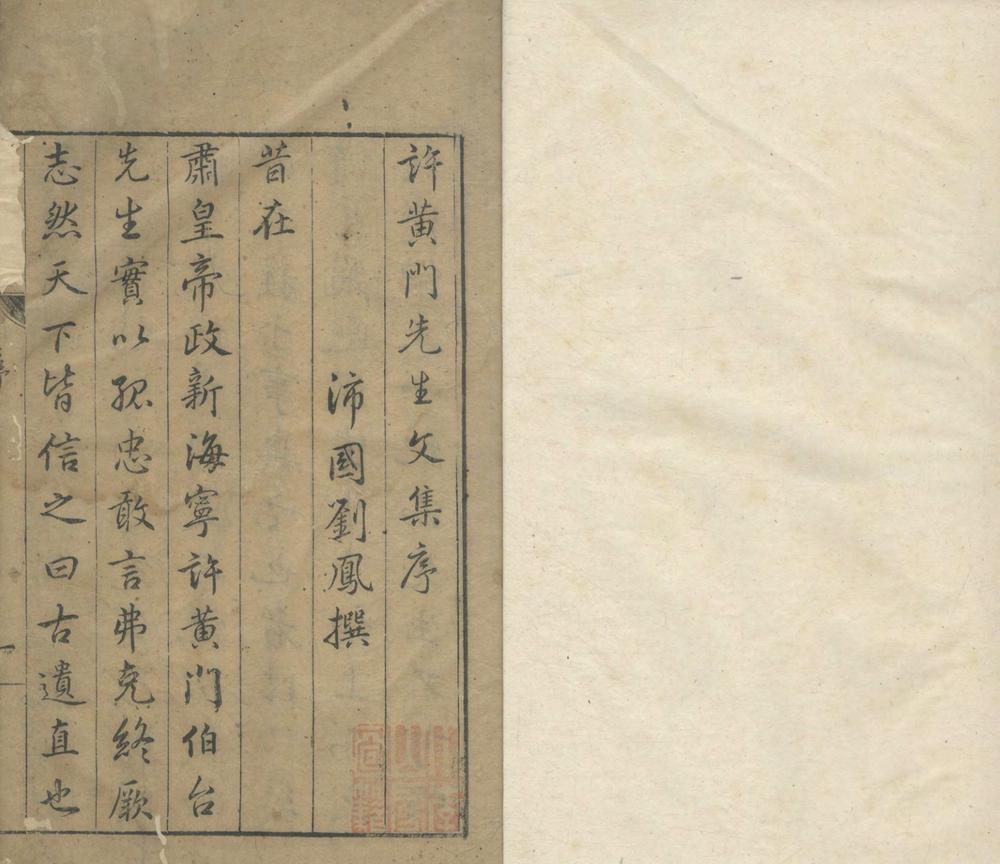 許黄門先生文集序
沛國劉鳳撰
昔在
肅皇帝政新海寧許黄門伯台
先生實以孤忠敢言弗克終厥
志然天下皆信之曰古遺直也